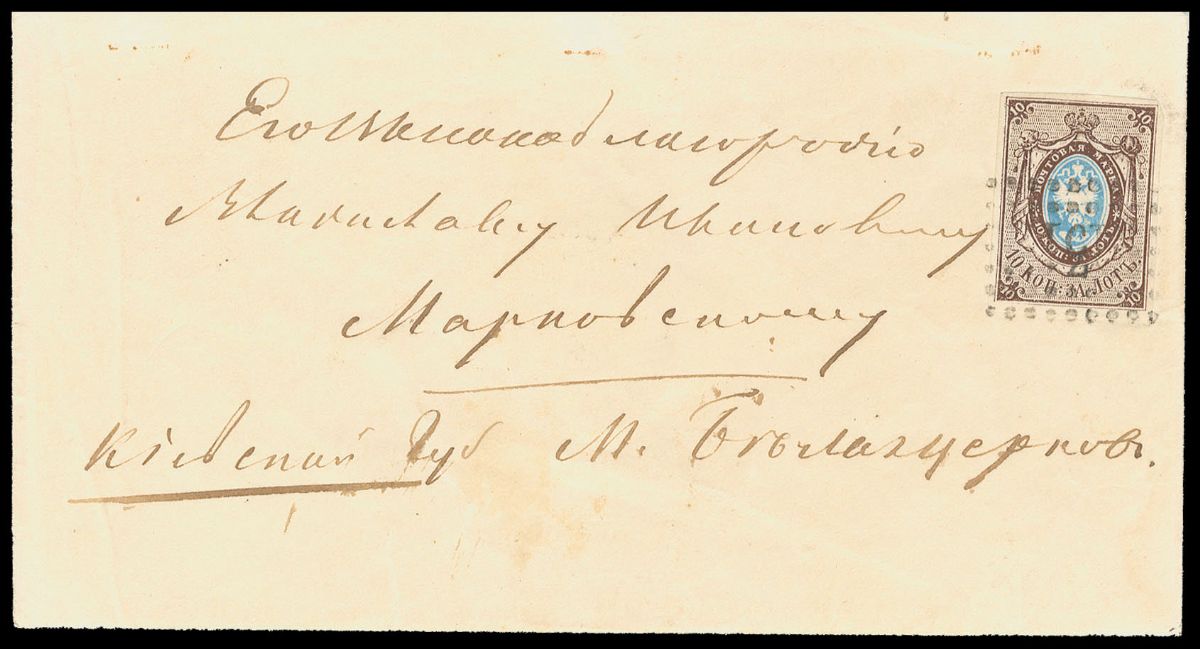 Его Высокоблагородію
Владиславу Ивановичу
Марковскому
Кіевской Губ М. Бѣлаяцерковь.
10 10
ПОЧТОВАЯ МАРКА
10 КОП: ЗА ЛОТЪ
10 КОП: ЗА ЛОТЪ.
10 10